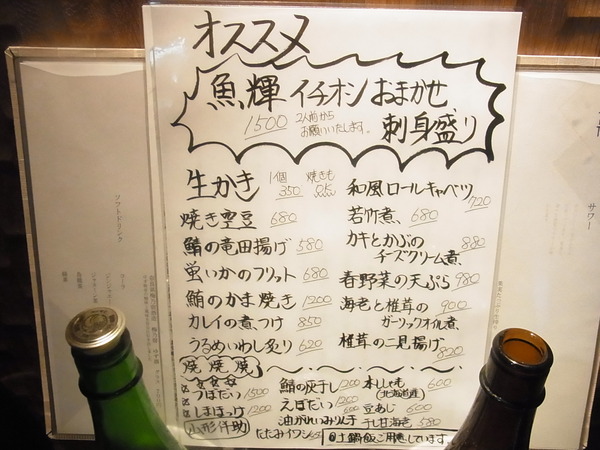 オススメ
魚輝 イチオシ おまかせ
1500 2人前から
お願いいたします。
刺身盛り
生かき 1個 350 焼きも OK
焼き空豆 680
鯖の竜田揚げ 580
蛍いかのフリット 680
鮪のかま焼き 1200
カレイの煮つけ 850
うるめいわし炙り 620
和風ロールキャベツ 720
若竹煮、680
カキとかぶの
チーズクリーム煮、880
春野菜の天ぷら 980
海老と椎茸の 900
ガーリックオイル煮、
椎茸の二見揚げ 820
焼 焼 焼
つぼだい 1500
しまほっけ 1200
山形仟助
たたみイワシ
鯖の灰干し 1200
えぼだい
油がれいみりん干
本ししゃも 600
(北海道産)
豆あじ 600
干し甘海老 580
土鍋飯ご用意しています。
ソフトドリンク
サワー